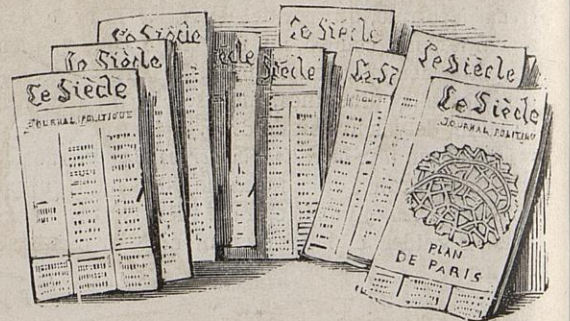 Le Siècle
Le Siècle
Le Siècle
JOURNAL POLITIQUE
Siècle
Siècle
Le Siècle
Le Si
Le Siècle
Le Siècle
JOURNAL POLITIQU
PLAN
DE PARIS